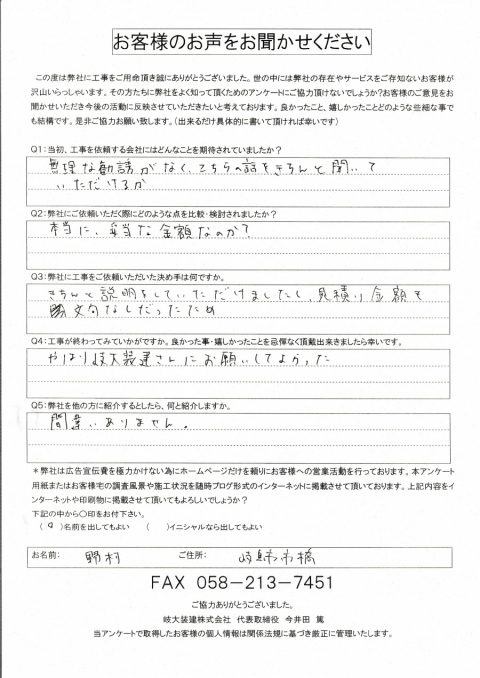 お客様のお声をお聞かせください
この度は弊社に工事をご用命頂き誠にありがとうございました。世の中には弊社の存在やサービスをご存知ないお客様が
沢山いらっしゃいます。その方たちに弊社をよく知って頂くためのアンケートにご協力頂けないでしょうか?お客様のご意見をお
聞かせいただき今後の活動に反映させていただきたいと考えております。良かったこと、嬉しかったことどのような些細な事で
も結構です。是非ご協力お願い致します。(出来るだけ具体的に書いて頂ければ幸いです)
Q1:当初、工事を依頼する会社にはどんなことを期待されていましたか?
無理な勧誘がなく、こちらの話をきちんと聞いて
いただけるか
Q2:弊社にご依頼いただく際にどのような点を比較・検討されましたか?
本当に、妥当な金額なのか?
Q3:弊社に工事をご依頼いただいた決め手は何ですか。
きちんと説明をしていただけましたし、見積り金額も
文句なしだったため
Q4:工事が終わってみていかがですか。良かった事・嬉しかったことを忌憚なく頂戴出来きましたら幸いです。
やはり岐大装建さんにお願いしてよかった
Q5:弊社を他の方に紹介するとしたら、何と紹介しますか。
間違いありません。
*弊社は広告宣伝費を極力かけない為にホームページだけを頼りにお客様への営業活動を行っております。本アンケート
用紙またはお客様宅の調査風景や施工状況を随時ブログ形式のインターネットに掲載させて頂いております。上記内容をイ
ンターネットや印刷物に掲載させて頂いてもよろしいでしょうか?
下記の中から○印をお付下さい。
(○)名前を出してもよい ( )イニシャルなら出してもよい
お名前: 野村 ご住所: 岐阜市市橋
FAX 058-213-7451
ご協力ありがとうございました。
岐大装建株式会社 代表取締役 今井田 篤
当アンケートで取得したお客様の個人情報は関係法規に基づき厳正に管理いたします。